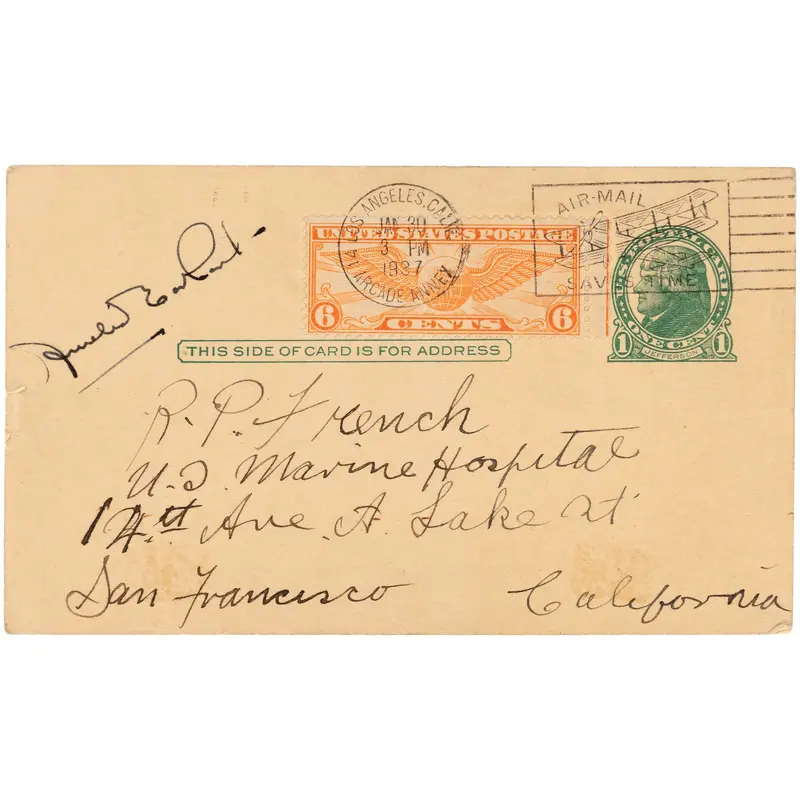 LOS ANGELES, CALIF.
14 ARCADE ANNEX
JAN 30
3 PM
1937
AIR-MAIL
SAVES TIME
UNITED STATES POSTAGE
6 CENTS 6
U.S. POSTAL CARD
1 ONE CENT 1
JEFFERSON
Amelia Earhart
THIS SIDE OF CARD IS FOR ADDRESS
R. P. French
U.S. Marine Hospital
14th Ave. A. Lake St
San Francisco California